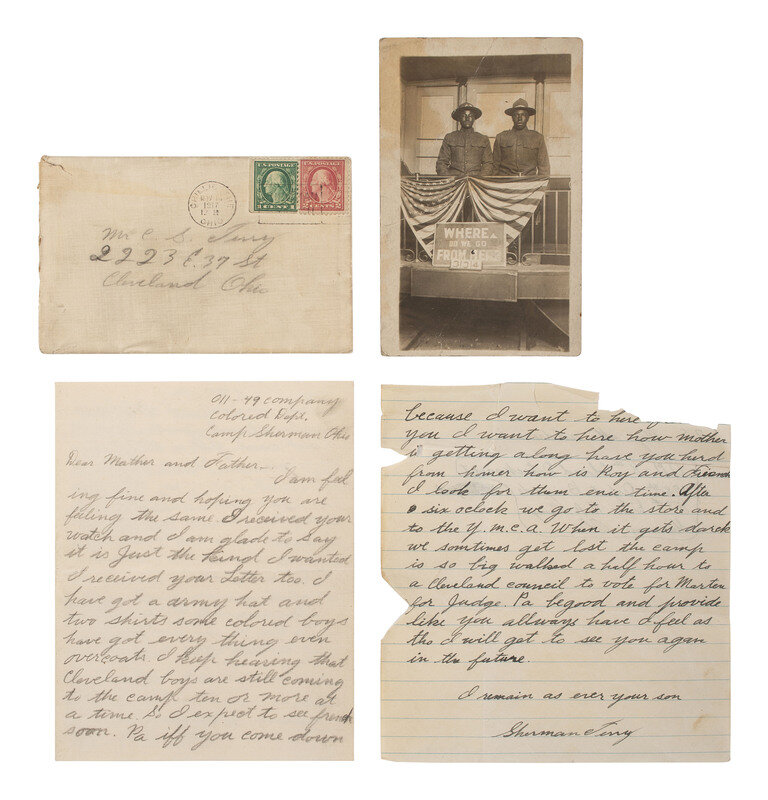 CHILLICOTHE
NOV
1917
OHIO
U.S. POSTAGE
1 CENT 1
U.S. POSTAGE
2 CENTS 2
Mr C. S. Terry
2223 E. 37 St
Cleveland Ohio
WHERE
DO WE GO
FROM HERE
Oll - 49 company
Colored Dept.
Camp Sherman Ohio
Dear Mather and Father-
I am feel
ing fine and hoping you are
faling the same. I received your
watch and I am glade to say
it is Just the kind I wanted
I received your letter too. I
have got a army hat and
two shirts some colored boys
have got every thing even
overcoats. I keep hearing that
Cleveland boys are still coming
to the camp ten or more at
a time. So I expect to see french
soon. Pa iff you come down
because I want to here
you I want to here how mother
is getting along have you herd
from homer how is Roy and
I look for them enie time. After
six oclock we go to the store and
to the Y.M.C.A. When it gets darck
we somtimes get lost the camp
is so big walked a half hour to
a Cleveland council to vote for Marten
for Judge. Pa begood and provide
like you allways have I feel as
tho I will get to see you again
in the future.
I remain as ever your son
Sherman Terry